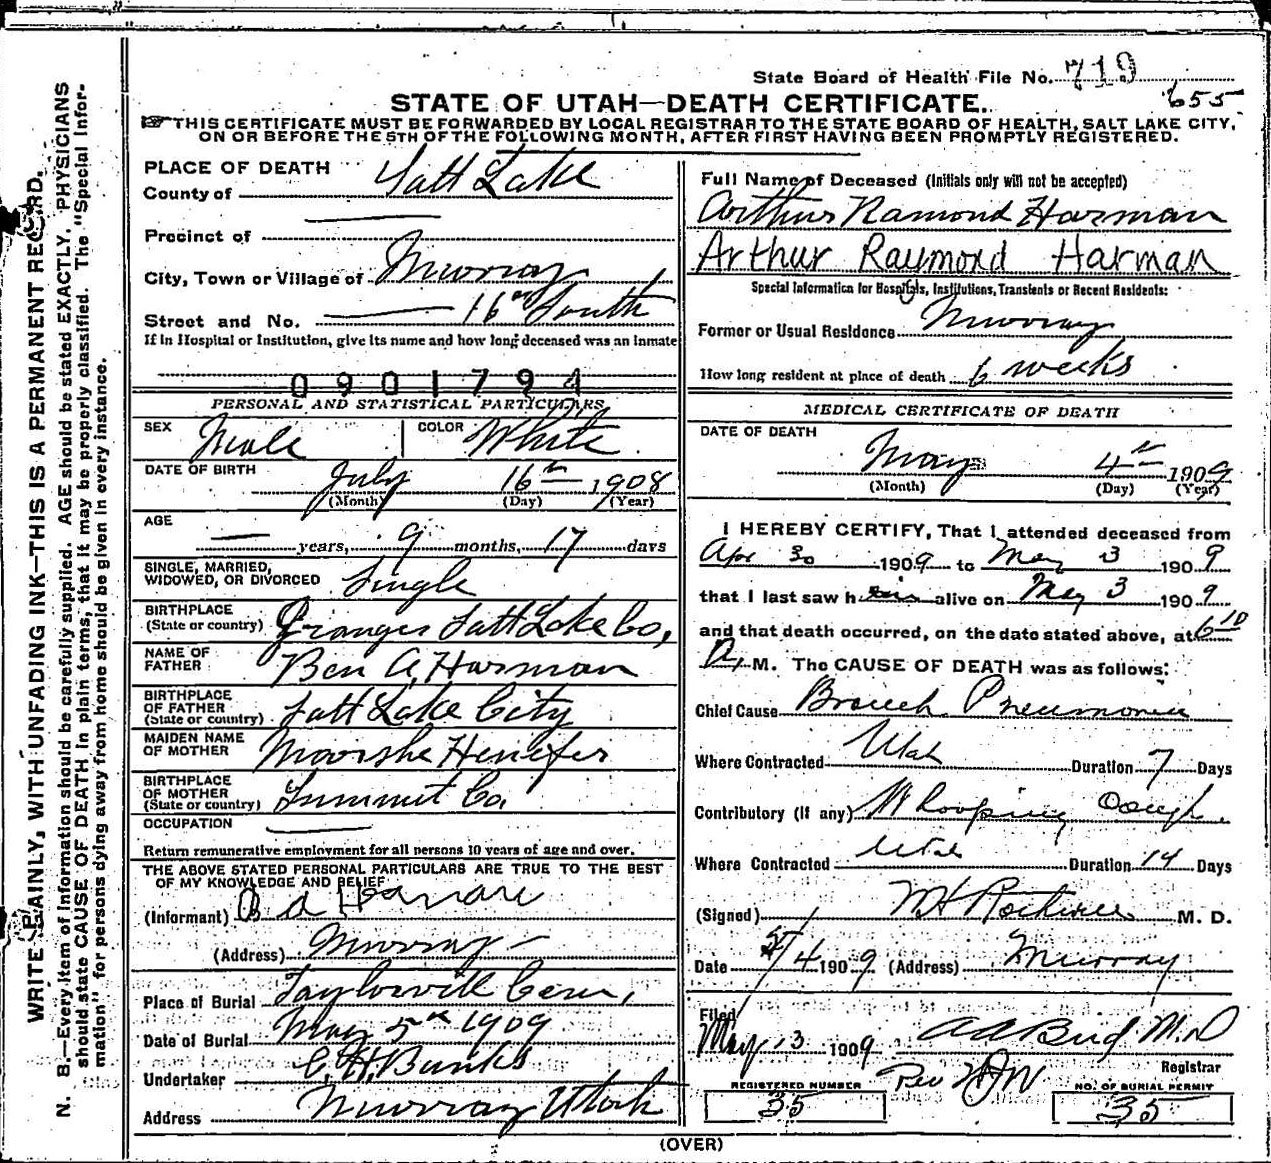 State Board of Health File No. 719
655
STATE OF UTAH—DEATH CERTIFICATE.
THIS CERTIFICATE MUST BE FORWARDED BY LOCAL REGISTRAR TO THE STATE BOARD OF HEALTH, SALT LAKE CITY,
ON OR BEFORE THE 5TH OF THE FOLLOWING MONTH, AFTER FIRST HAVING BEEN PROMPTLY REGISTERED.
WRITE PLAINLY, WITH UNFADING INK—THIS IS A PERMANENT RECORD.
N. B.—Every item of information should be carefully supplied. AGE should be stated EXACTLY. PHYSICIANS
should state CAUSE OF DEATH in plain terms, that it may be properly classified. The "Special Infor-
mation" for persons dying away from home should be given in every instance.
PLACE OF DEATH
County of Salt Lake
Precinct of —
City, Town or Village of Murray
Street and No. — 16th South
If in Hospital or Institution, give its name and how long deceased was an inmate
0901794
PERSONAL AND STATISTICAL PARTICULARS
SEX Male COLOR White
DATE OF BIRTH July 16th 1908
(Month) (Day) (Year)
AGE — years, 9 months, 17 days
SINGLE, MARRIED,
WIDOWED, OR DIVORCED Single
BIRTHPLACE
(State or country) Granger Salt Lake Co,
NAME OF
FATHER Ben A. Harman
BIRTHPLACE
OF FATHER
(State or country) Salt Lake City
MAIDEN NAME
OF MOTHER Henefer
BIRTHPLACE
OF MOTHER
(State or country) Summit Co.
OCCUPATION —
Return remunerative employment for all persons 10 years of age and over.
THE ABOVE STATED PERSONAL PARTICULARS ARE TRUE TO THE BEST
OF MY KNOWLEDGE AND BELIEF
(Informant) B A Harman
(Address) Murray —
Place of Burial Taylorsvill Cem,
Date of Burial May 5th 1909
Undertaker
Address Murray Utah
Full Name of Deceased (Initials only will not be accepted)
Arthur Ramond Harman
Arthur Raymond Harman
Special Information for Hospitals, Institutions, Transients or Recent Residents:
Former or Usual Residence Murray
How long resident at place of death 6 weeks
MEDICAL CERTIFICATE OF DEATH
DATE OF DEATH
May 4th 1909
(Month) (Day) (Year)
I HEREBY CERTIFY, That I attended deceased from
Apr 30 1909 to May 3 1909
that I last saw him alive on May 3 1909
and that death occurred, on the date stated above, at 6 10
A. M. The CAUSE OF DEATH was as follows:
Chief Cause Bronch. Pneumonia
Where Contracted Utah Duration 7 Days
Contributory (if any) Whooping Cough.
Where Contracted Utah Duration 14 Days
(Signed) M. D.
Date 5/4 1909 (Address) Murray
Filed
May 13 1909 Bird M.D
Registrar
REGISTERED NUMBER 35
NO. OF BURIAL PERMIT 35
(OVER)